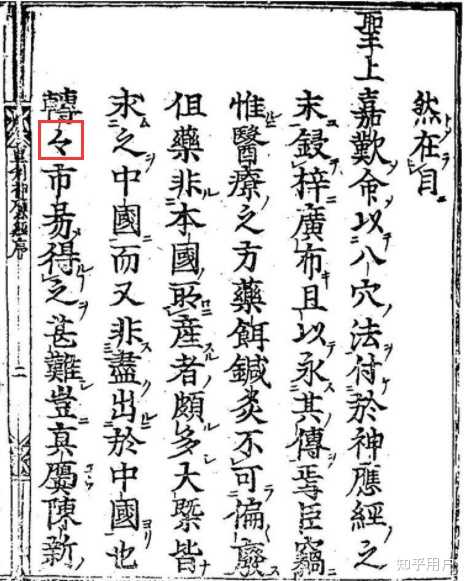 然在目
聖上嘉歎命以八穴法付於神應經之
末鋟梓廣布且以永其傳焉臣竊
惟醫療之方藥餌鍼灸不可偏廢
但藥非本國所產者頗多大槩皆
求之中國而又非盡出於中國也
轉々市易得之甚難豈真贋陳新
神應經序 二
知乎用户